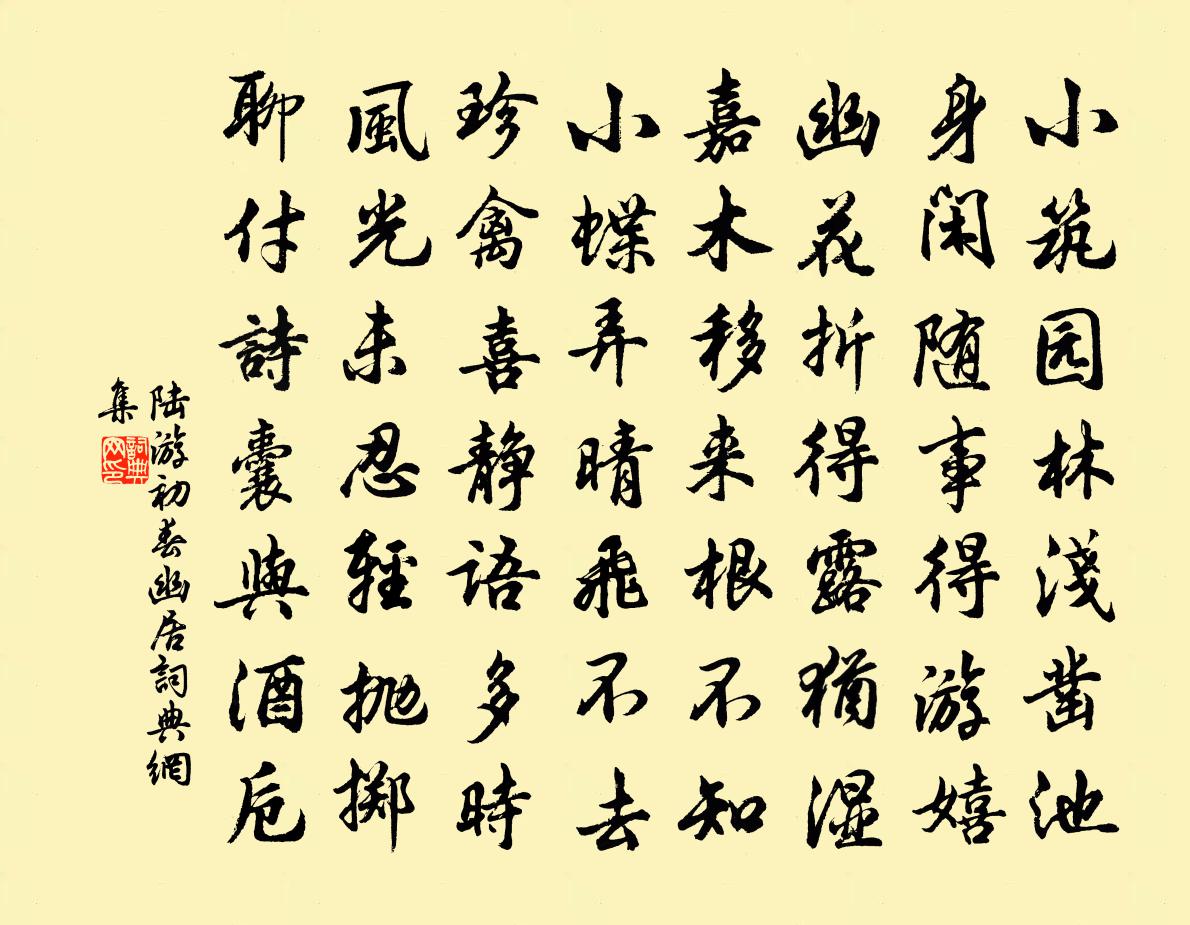 小筑园林淺凿池
身闲随事得游嬉
幽花折得露猶湿
嘉木移来根不知
小蝶弄晴飛不去
珍禽喜静语多時
風光未忍輕抛掷
聊付詩囊與酒卮
陆游初春幽居詞典網
集
詞典
网印